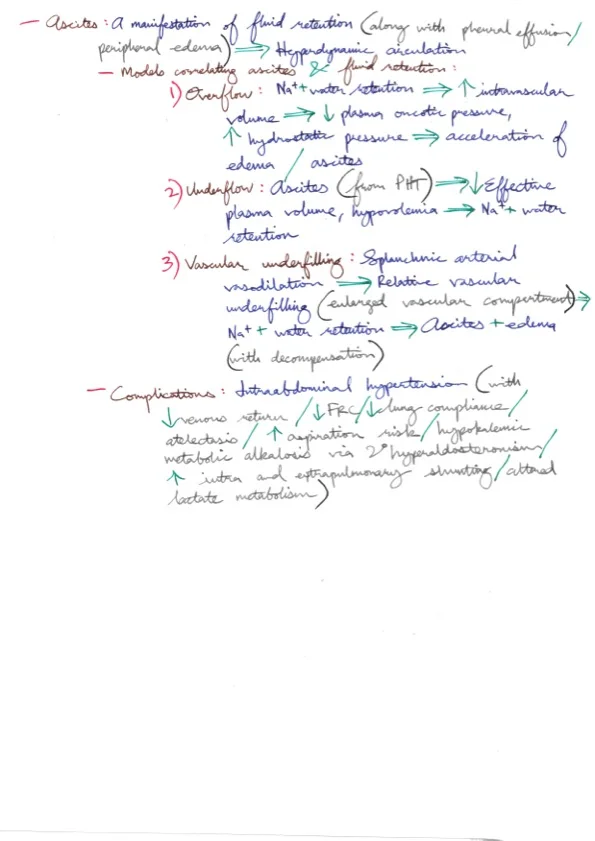 — Ascites : A manifestation of fluid retention (along with pleural effusion/
peripheral edema) ⇒ Hyperdynamic circulation
— Models correlating ascites & fluid retention :
1) Overflow : Na⁺ + water retention ⇒ ↑ intravascular
volume ⇒ ↓ plasma oncotic pressure,
↑ hydrostatic pressure ⇒ acceleration of
edema / ascites
2) Underflow : Ascites (from PHT) ⇒ ↓ Effective
plasma volume, hypovolemia → Na⁺ + water
retention
3) Vascular underfilling : Splanchnic arterial
vasodilation ⇒ Relative vascular
underfilling (enlarged vascular compartment) ⇒
Na⁺ + water retention ⇒ Ascites + edema
(with decompensation)
— Complications : Intraabdominal hypertension (with
↓ venous return / ↓ FRC / ↓ lung compliance /
atelectasis / ↑ aspiration risk / hypokalemic
metabolic alkalosis via 2° hyperaldosteronism /
↑ intra and extrapulmonary shunting / altered
lactate metabolism)